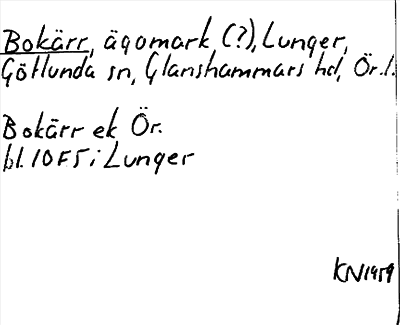 Bokärr, ägomark (?), Lunger,
Götlunda sn, Glanshammars hd, Ör.l.
Bokärr ek Ör.
bl. 10F5i Lunger
KN1959